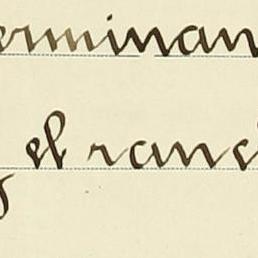 erminan
el ranc